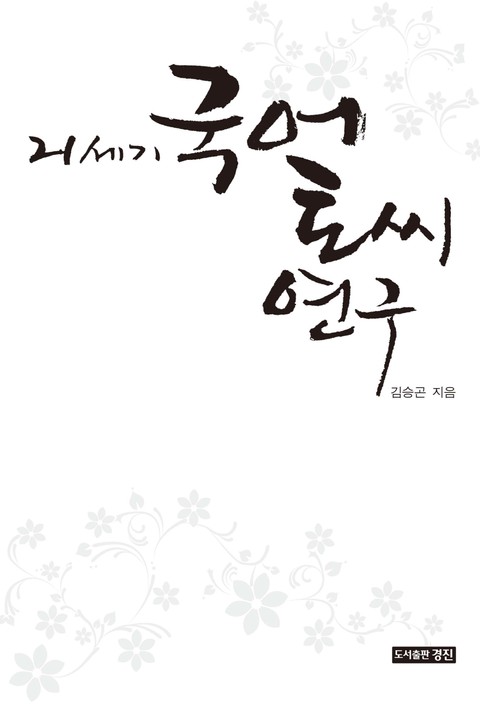 21세기 국어
토씨
연구
김승곤 지음
도서출판 경진